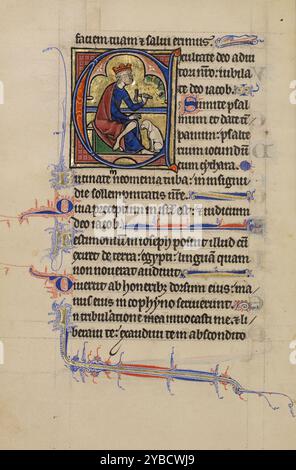 faciem tuam & salvi erimus.
xultate deo adiu
tori nr̄o: iubila
te deo iacob.
Sumite psal
mum et date tȳ
panum: psalte
rium iocundum
cum cythara.
Bucinate ī neomenia tuba: in insigni
die sollempnitatis vr̄e.
Quia preceptum in isrł est: & iudicium
deo iacob.
Testimonium in ioseph posuit illud cū
exiret de terra egypti: linguam quam
non noverat audivit.
Divertit ab honerib; dorsum eius: ma
nus eius in cophyno servierunt.
In tribulatione invocasti me & li
beravi te: exaudivi te in abscondito
alamy
Image ID: 2YBCWJ9
www.alamy.com